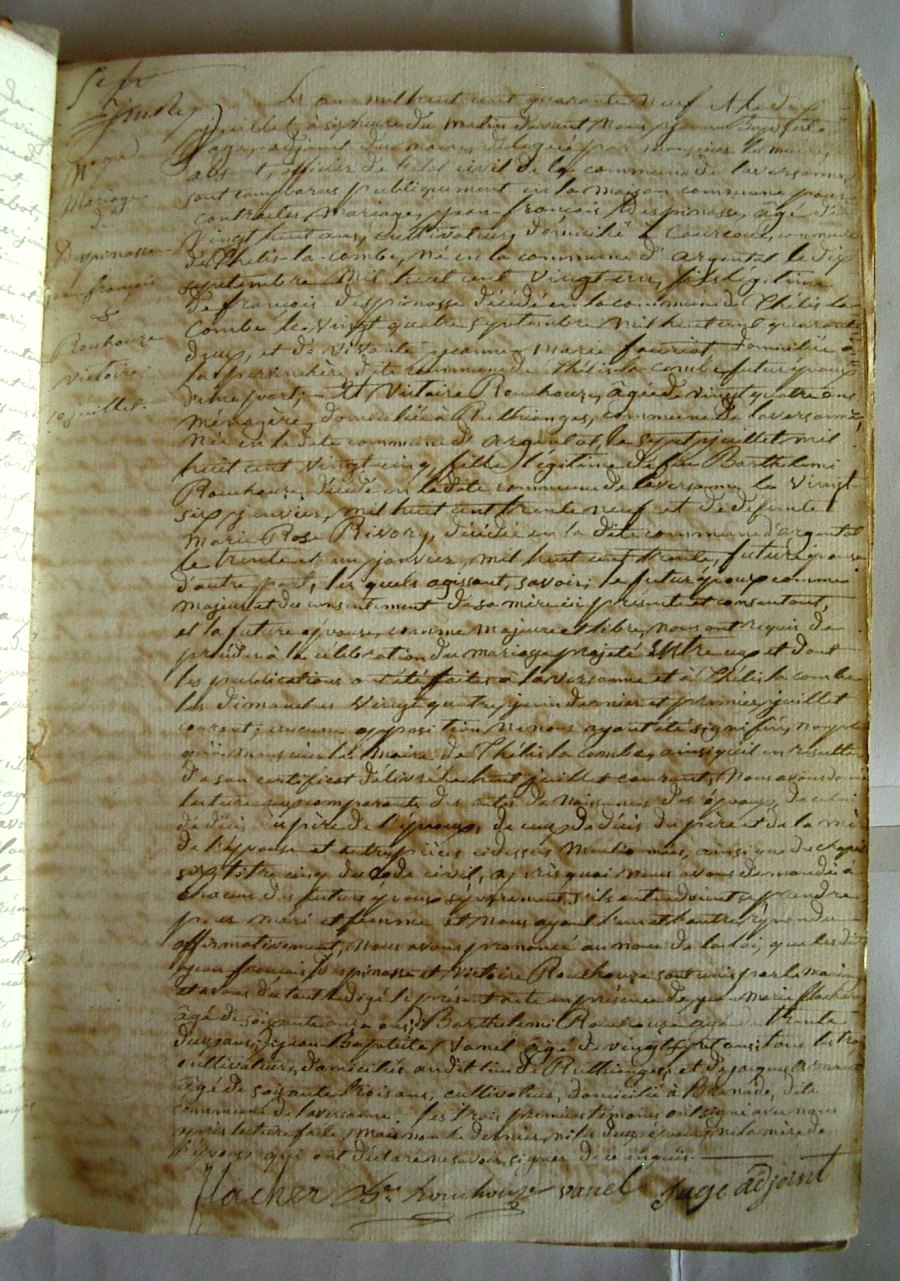 Mariage
de
Despinasse
jean françois
&
Rouhouze
victoire
10 juillet
L'an mil huit cent quarante neuf et le dix
juillet à six heures du matin devant nous jean Baptiste
Page, adjoint du maire, délégué par monsieur le maire,
absent, officier de l'état civil de la commune de laversanne
sont comparus publiquement en la maison commune pour
contracter mariage, jean françois Despinasse, âgé de
vingt huit ans, cultivateur, domicilié à Courcou, commune
de Thélis-la-combe, né en la commune d'argental le dix
septembre mil huit cent vingt un, fils légitime
de françois Despinasse décédé en la commune de Thélis la
Combe le vingt quatre septembre mil huit cent quarante
deux, et de vivante jeanne Marie fauriat, domiciliée à
la dite commune de thélis la combe, futur époux
d'une part; Et Victoire Rouhouze, âgée de vingt quatre ans
ménagère, domiciliée à Ruthianges, commune de laversanne,
née en la dite commune d'argental, le sept juillet mil
huit cent vingt-cinq, fille légitime de feu Barthelemi
Rouhouze, décédé en la dite commune de laversanne le vingt
six janvier, mil huit cent trente neuf et de défunte
Marie Rose Rivory, décédée en la dite commune d'argental
le trente et un janvier, mil huit cent trente, future épouse
d'autre part, les quels agissant, savoir; le futur époux comme
majeur et du consentement de sa mère ici présente et consentant,
et la future épouse, comme majeure et libre, nous ont requis de
procéder à la célébration du mariage projeté entre eux et dont
les publications ont été faites à laversanne et à Thélis la combe
les dimanches vingt quatre juin dernier et premier juillet
courant; aucune opposition ne nous ayant été signifiée, non plus
qu'à monsieur le maire de Thélis la combe, ainsi qu'il en résulte
de son certificat délivré le huit juillet courant, Nous avons donné
lecture aux comparants des actes de naissance des époux, de celui
de décès du père de l'époux, de ceux de décès du père et de la mère
de l'épouse et autres pièces cidessus mentionnées, ainsi que du chapitre
six, titre cinq du Code civil, après quoi nous avons demandé à
chacun des futurs époux séparément, s'ils entendoient se prendre
pour mari et femme et nous ayant l'un et l'autre répondu
affirmativement, nous avons prononcé au nom de la loi, que les dits
jean françois Despinasse et Victoire Rouhouze sont unis par le mariage
et avons du tout rédigé le présent acte en présence de jean Marie flacher
âgé de soixante onze ans, de Barthelemi Rouhouze âgé de trente
deux ans, de jean Baptiste Vanel âgé de vingt sept ans, tous les trois
cultivateurs, domiciliés audit lieu de Ruthianges, et de jacques
âgé de soixante trois ans, cultivateur, domicilié à dite
commune de laversanne. Les trois premiers témoins ont signé avec nous
après lecture faite, mais non le dernier, ni les deux époux, ni la mère de
l'époux qui ont déclaré ne savoir signer de ce enquis.
flacher Bmi rouhouze vanel page adjoint